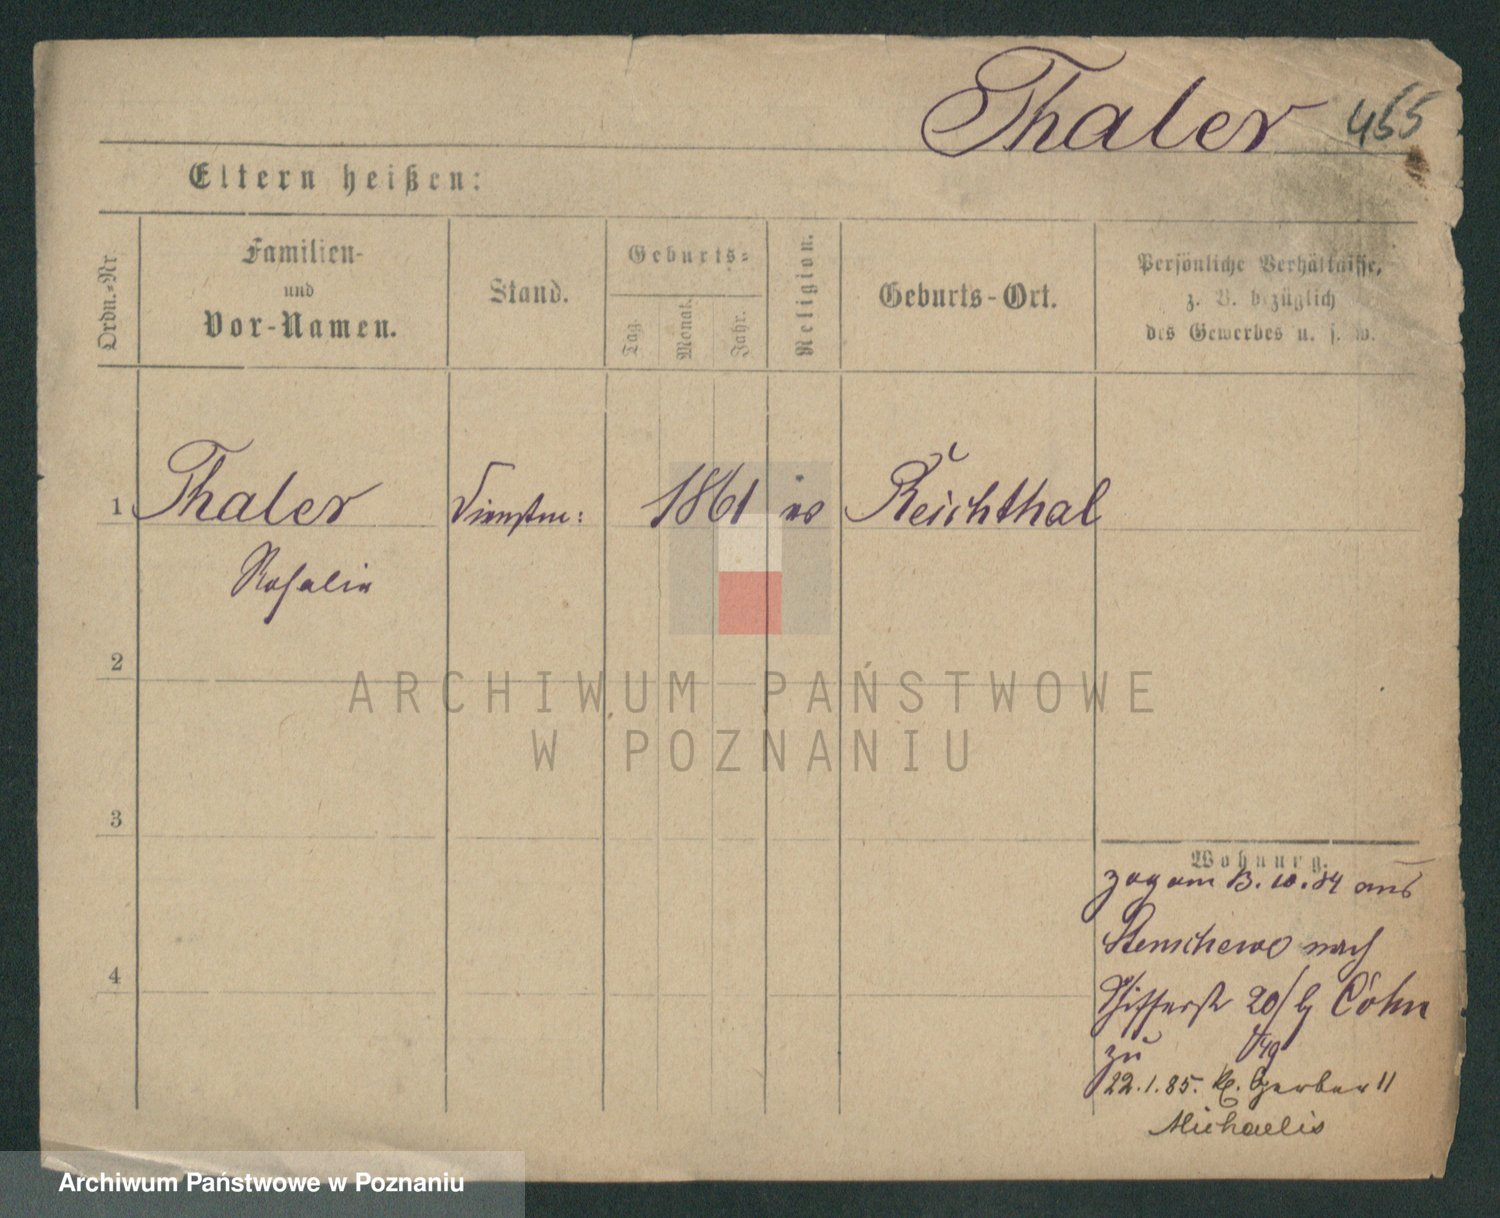 Thaler 455
Eltern heißen:
Ordn.-Nr.
Familien-
und
Vor-Namen.
Stand.
Geburts-
Tag.
Monat.
Jahr.
Religion.
Geburts-Ort.
Persönliche Verhältnisse,
z. B. bezüglich
des Gewerbes u. s. w.
1 Thaler Dienstm: 1861 Reichthal
Rosalie
2
ARCHIWUM PAŃSTWOWE
W POZNANIU
3
Wohnung.
zog am 13.10.84 aus
Stenschewo nach
20/ Cohn
zu
4
22.1.85. Gerber 11
Michaelis
Archiwum Państwowe w Poznaniu